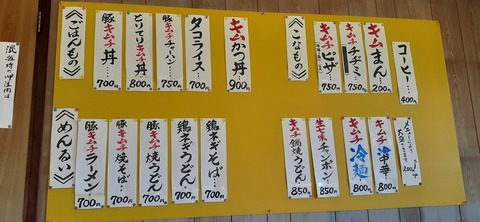 《ごはんもの》
豚キムチ丼…700円
とりてりキムチ丼…800円
豚キムチチャーハン…750円
タコライス…700円
キムかつ丼900円
《こなもの》
キムチピザ…750円
キムチチヂミ…750円
キムまん…200円
コーヒー…400円
《めんるい》
豚キムチラーメン700円
豚キムチ焼そば…700円
豚キムチ焼うどん700円
鶏ネギうどん700円
鶏ネギそば…700円
キムチ鍋焼うどん850円
生七味チャンポン…850円
キムチ冷麺800円
キムチ冷中華…800円